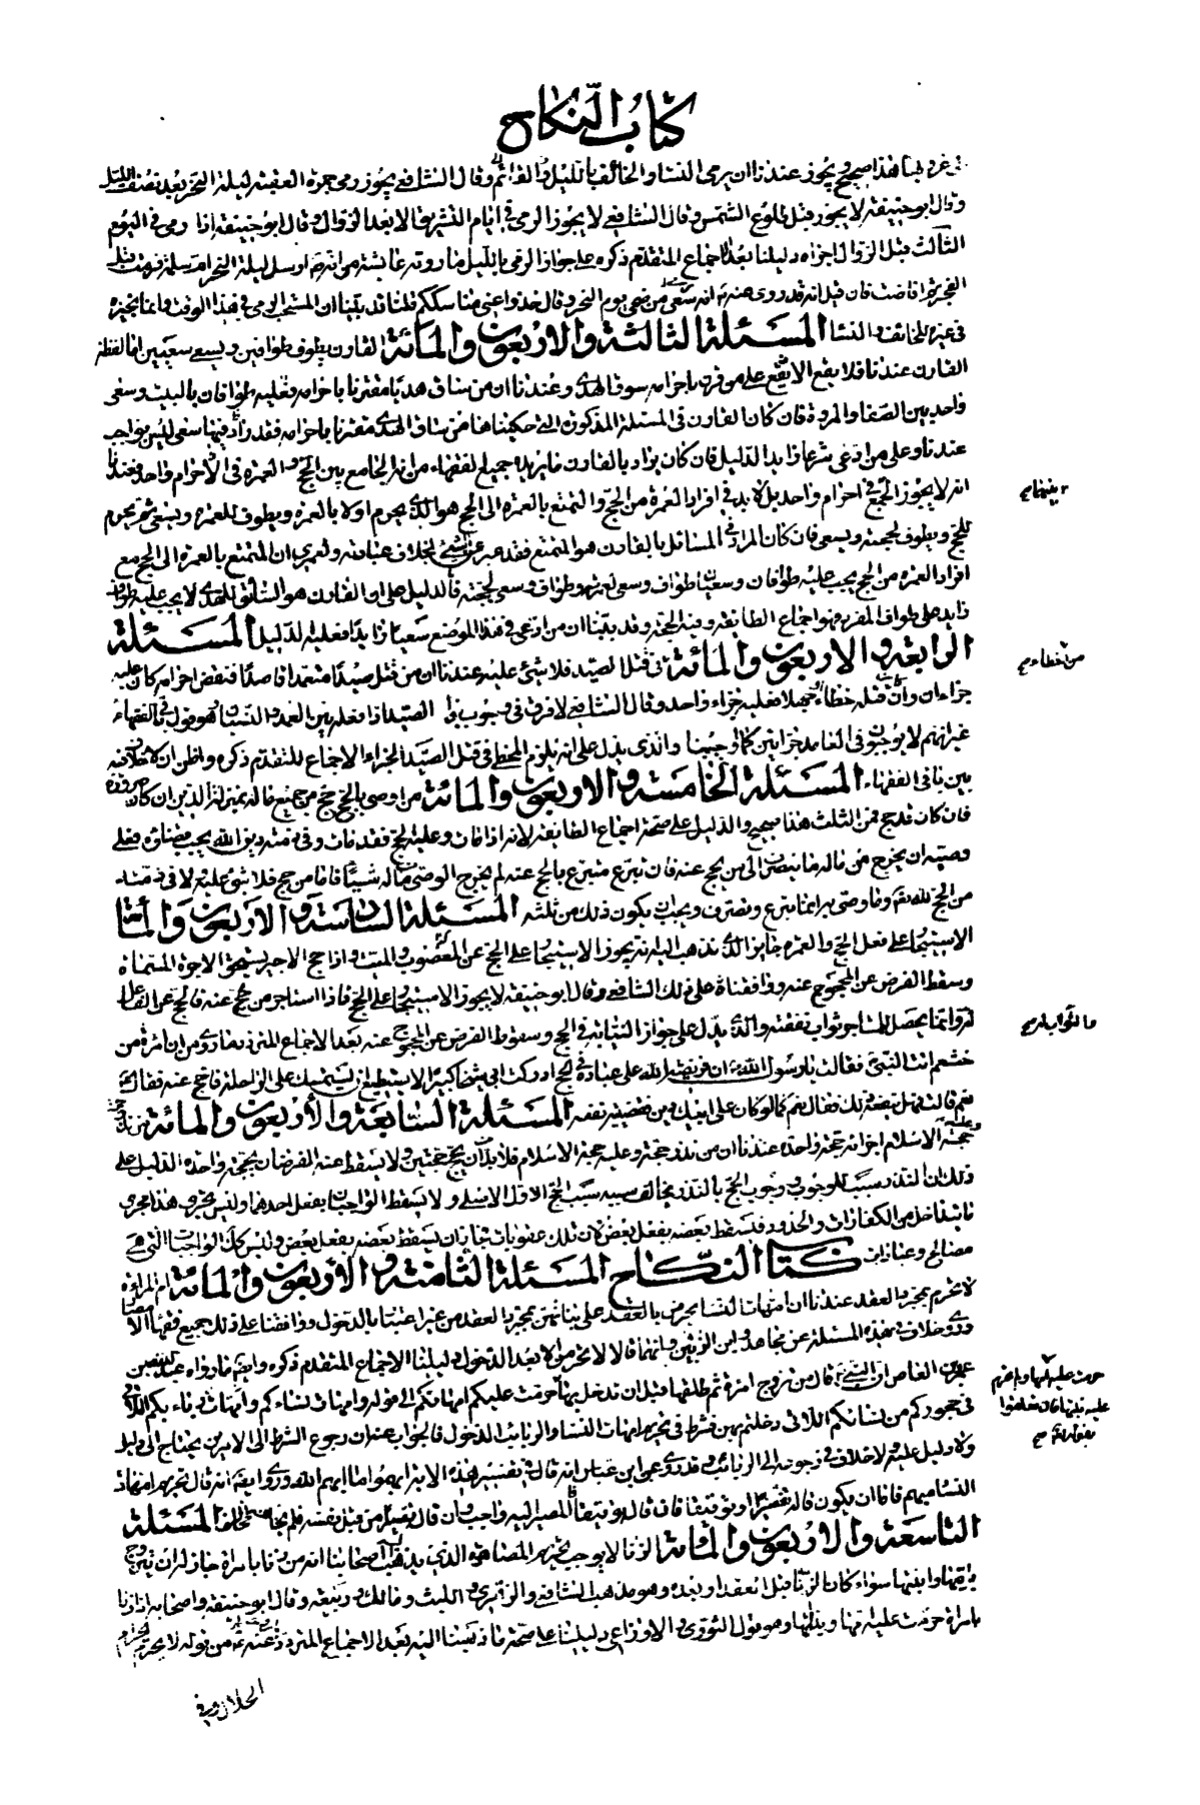 كتاب النكاح
غروبها هذا صحيح ويجوز عندنا ان يرمى النساء والخائف بالليل وقال الشافعي يجوز رمى جمرة العقبة ليلة النحر بعد نصف الليل
وقال ابو حنيفة لا يجوز قبل طلوع الشمس وقال الشافعي لا يجوز الرمى في ايام التشريق الا بعد الزوال وقال ابو حنيفة اذا رمى في اليوم
الثالث قبل الزوال اجزاه دليلنا بعد الاجماع المتقدم ذكره على جواز الرمى بالليل ما روته عايشة من انه ارسل ليلة النحر ام سلمة فرمت قبل
الفجر ثم افاضت فان قيل انه قد روى عنه انه سعى من ضحى يوم النحر وقال خذوا عنى مناسككم قلنا قد بينا ان المستحب الرمى في هذا الوقت وانما يجيزه
في غيره للخائف والنساء المسئلة الثالثة والاربعون والمائة القارن يطوف طوافين ويسعى سعيين لفظ
القارن عندنا فلا يقع الا على من قرن باحرامه سوق الهدى وعندنا ان من ساق هديا مقترنا باحرامه فعليه طوافان بالبيت وسعى
واحد بين الصفا والمروة فان كان القارن في المسئلة المذكورة التي حكيناها من ساق الهدى مقترنا باحرامه فقد زاد فيها سعى ليس بواجب
عندنا وعلى من ادعى شرعا زايدا الدليل فان كان يراد بالقارن ما يريده جميع الفقهاء من انه الجامع بين الحج والعمرة في احرام واحد فعندنا
انه لا يجوز الجمع في احرام واحد بل لابد في افراد العمرة من الحج والتمتع بالعمرة الى الحج هو الذي يحرم اولا بالعمرة ويطوف للعمرة ويسعى ثم يحرم
بينهما صح
للحج ويطوف لحجته ويسعى فان كان المراد في المسائل بالقارن هو المتمتع فقد عبر عن الشئ بخلاف عبارته ولعمرى ان المتمتع بالعمرة الى الحج مع
افراد العمرة من الحج يجب عليه طوافان وسعيان طواف وسعى لعمرته وطواف وسعى لحجته فالدليل على ان القارن هو السائق للهدى لا يجب عليه طواف
زايد على طواف المفرد فهو اجماع الطائفة وفيه الحجة وقد بينا ان من ادعى في هذا الموضع سعيا زايدا فعليه الدليل المسئلة
الرابعة والاربعون والمائة في قتل الصيد فلا شئ عليه عندنا ان من قتل صيدا متعمدا قاصدا فنقض احرامه كان عليه
من خطاء صح
جزاءان وان قتله خطاء وجهلا فعليه جزاء واحد وقال الشافعي لا فرق في وجوب الصيد اذا فعله بين العمد والنسيان وهو قول الفقهاء
غير انهم لا يوجبون في العامد جزاءين كما اوجبنا والذي يدل على انه يلزم المخطئ في قتل الصيد الجزاء الاجماع المتقدم ذكره واظن ان لا خلاف فيه
بين باقي الفقهاء المسئلة الخامسة والاربعون والمائة من اوصى بالحج حج من جميع ماله بمنزلة الدين ان كان صرورة
فان كان قد حج فمن الثلث هذا صحيح والدليل على صحته اجماع الطائفة لانه اذا مات وعليه الحج فقد مات وفي ذمته دين الله يجب قضاؤه فعلى
وصيه ان يخرج من ماله ما ينصرف الى من يحج عنه فان تبرع متبرع بالحج عنه لم يخرج الوصى من ماله شيئا فاما من حج فلا شئ عليه لا في ذمته
من الحج لله وما وصى به انما تبرع وتصرف ويجب ان يكون ذلك من ثلثه المسئلة السادسة والاربعون والمائة
الاستيجار على فعل الحج والعمرة جايز الذي نذهب اليه انه يجوز الاستيجار على الحج عن المعضوب والميت واذا حج الاجير يستحق الاجرة المسماة
وسقط الفرض عن المحجوج عنه ووافقنا على ذلك الشافعي وقال ابو حنيفة لا يجوز الاستيجار على الحج فاذا استاجر من يحج عنه فالحج عن الفاعل
له وانما يحصل للمستاجر ثواب نفقته والذي يدل على جواز النيابة في الحج وسقوط الفرض عن المحجوج عنه بعد الاجماع المتردد ما روى من ان امرءة من
خثعم اتت النبي فقالت يا رسول الله ان فريضة الله على عباده في الحج ادركت ابى شيخا كبيرا لا يستطيع ان يستمسك على الراحلة فاحج عنه فقال
نعم قالت فهل ينفعه ذلك فقال نعم كما لو كان على ابيك دين فقضيتيه نفعه المسئلة السابعة والاربعون والمائة من نذر
وعليه حجة الاسلام اجزاته حجة واحدة عندنا ان من نذر حجة وعليه حجة الاسلام فلا بد ان يحج حجتين ولا يسقط عنه الفرضان بحجة واحدة الدليل على
ذلك ان النذر سبب للوجوب ووجوب الحج بالنذر يخالف سببه سبب الحج الاول الاصلى ولا يسقط الواجبان بفعل احدهما وليس يجرى هذا مجرى
ما يتداخل من الكفارات والحدود فسقط بعضه بفعل بعض لان تلك عقوبات فجاز ان يسقط بعضه بفعل بعض وليس كذلك الواجبات التي هي
مصالح وعبادات كتاب النكاح المسئلة الثامنة والاربعون والمائة ام المراة
لا تحرم بمجرد العقد عندنا ان امهات النساء يحرمن بالعقد على بناتهن بمجرد العقد من غير اعتبار بالدخول ووافقنا على ذلك جميع فقهاء الامصار
وروى خلاف في هذه المسئلة عن مجاهد وابن الزبير وانهما قالا لا تحرم الا بعد الدخول دليلنا الاجماع المتقدم ذكره وايضا ما رواه عبد الله بن
عمرو بن العاص ان النبي قال من تزوج امرءة ثم طلقها قبل ان يدخل بها حرمت عليكم امهاتكم الى قوله وامهات نساءكم وامهات ربائبكم اللاتي
حرمت عليه امها ولم تحرم
عليه بنتها فان تعلقوا
بقوله تعالى صح
في حجوركم من نسائكم اللاتي دخلتم بهن فشرط في تحريم امهات النساء والربائب الدخول فالجواب عنه ان رجوع الشرط الى الامرين يحتاج الى دليل
ولا دليل عليه ولا خلاف في رجوعه الى الربائب وقد روى عن ابن عباس انه قال في تفسير هذه الاية ابهموا ما ابهم الله وروى ايضا انه قال تحريم امهات
النساء مبهم فاما ان يكون قاله تفسيرا او توقيفا فان قاله توقيفا فالمصير اليه واجب وان قال تفسيرا من قبل نفسه فلم يخالف المسئلة
التاسعة والاربعون والمائة الزنا لا يوجب تحريم المصاهرة الذي يذهب اليه اصحابنا انه من زنا بامراة جاز له ان يتزوج
بامها وابنتها سواء كان الزنا قبل العقد او بعده وهو مذهب الشافعي والزهرى والليث ومالك وربيعة وقال ابو حنيفة واصحابه اذا زنا
بامراة حرمت عليه امها وبنتها وهو قول الثورى والاوزاعى دليلنا على صحة ما ذهبنا اليه بعد الاجماع المتردد عنه من قوله لا يحرم الحرام
الحلال وفي